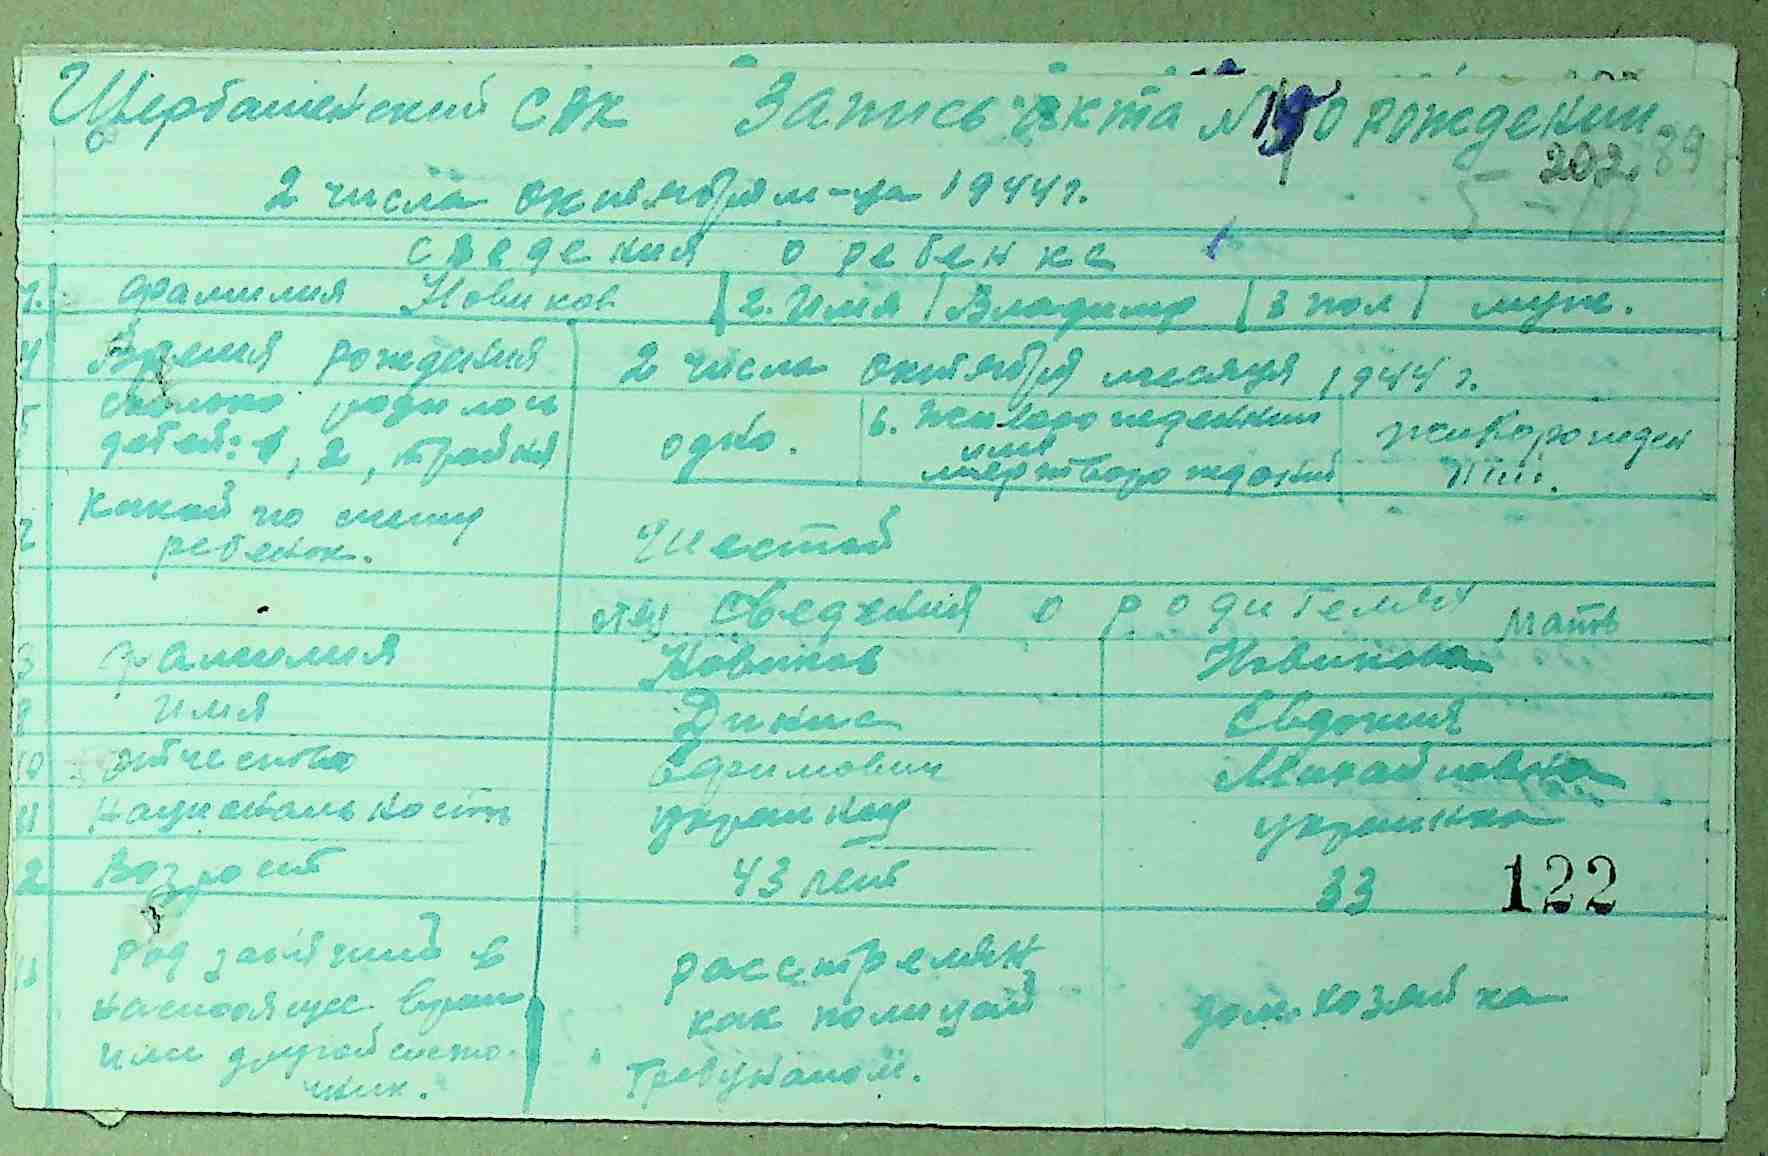 Щербашенский СВК Запись акта № о рождении
202. 89
2 числа октября м-ца 1944 г. 5-10
сведения о ребенке
1. фамилия Новиков 2. Имя Владимир 3 пол муж.
4 Время рождения 2 числа октября месяца 1944 г.
5 сколько родилось
детей: 1, 2, тройня одно. 6. Живорожденный
или
мертворожденный живорожден
ный.
7 Какой по счету
ребенок. Шестой
отец Сведения о родителях мать
8 фамилия Новиков Новикова
9 имя Динис Евдокия
10 отчество Ефимович Михайловна
11 Национальность украинец украинка
12 Возраст 43 лет 33 122
13 Род занятий в
настоящее время
или другой источ-
ник. расстрелян
как полицай
Требуналом. домхозяйка